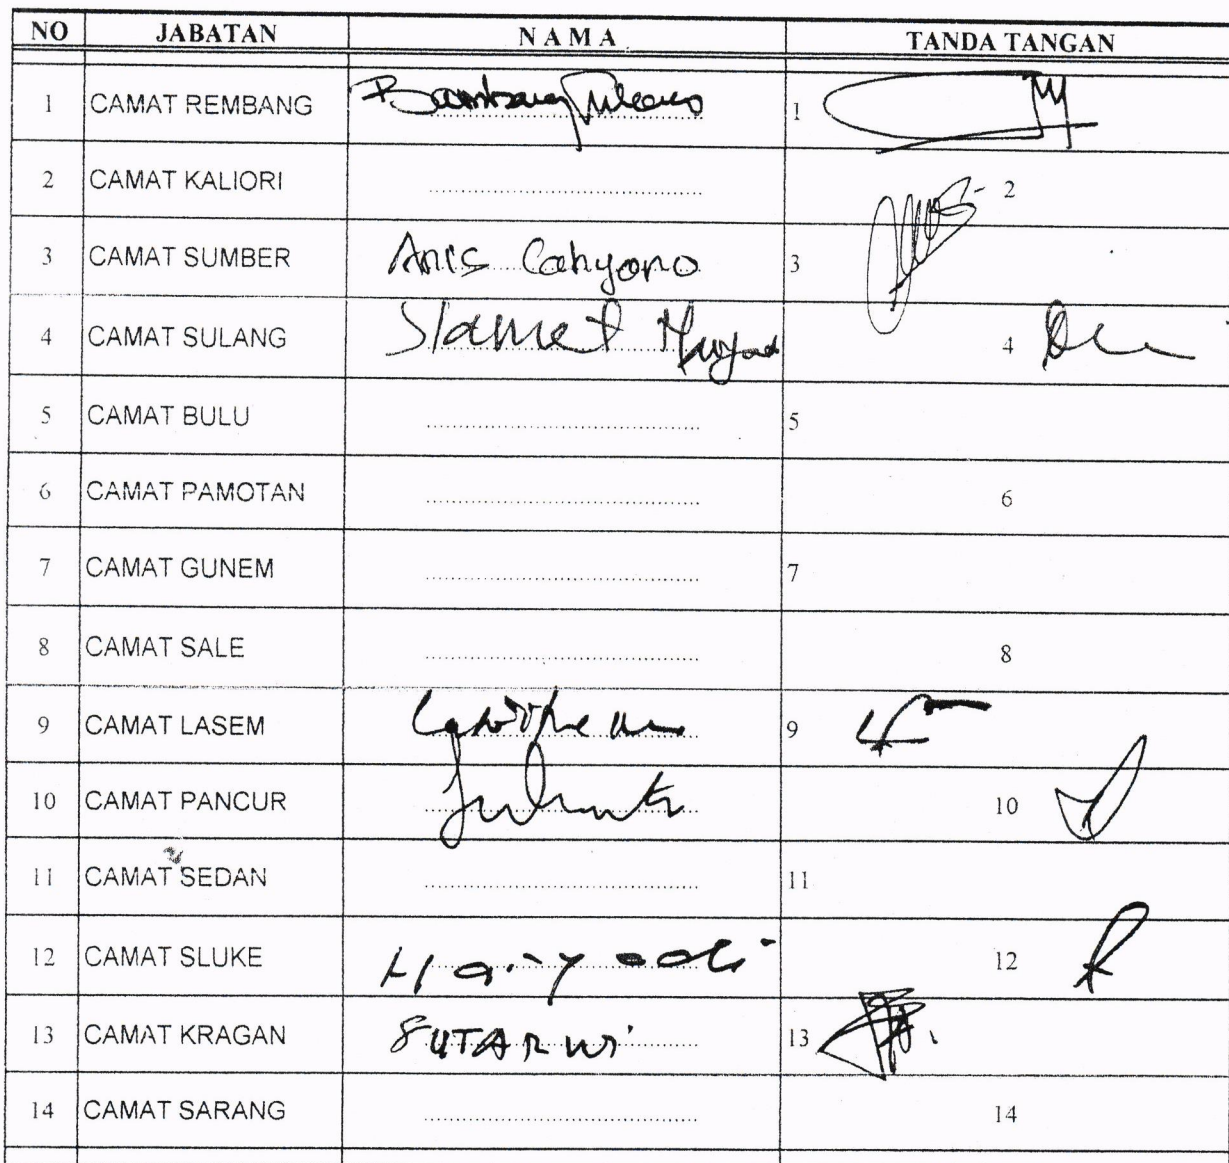 NO JABATAN N A M A TANDA TANGAN
1 CAMAT REMBANG Bambang 1
2 CAMAT KALIORI 2
3 CAMAT SUMBER Anis Cahyono 3
4 CAMAT SULANG Slamet 4
5 CAMAT BULU 5
6 CAMAT PAMOTAN 6
7 CAMAT GUNEM 7
8 CAMAT SALE 8
9 CAMAT LASEM 9
10 CAMAT PANCUR 10
11 CAMAT SEDAN 11
12 CAMAT SLUKE Haryadi 12
13 CAMAT KRAGAN SUTARWI 13
14 CAMAT SARANG 14